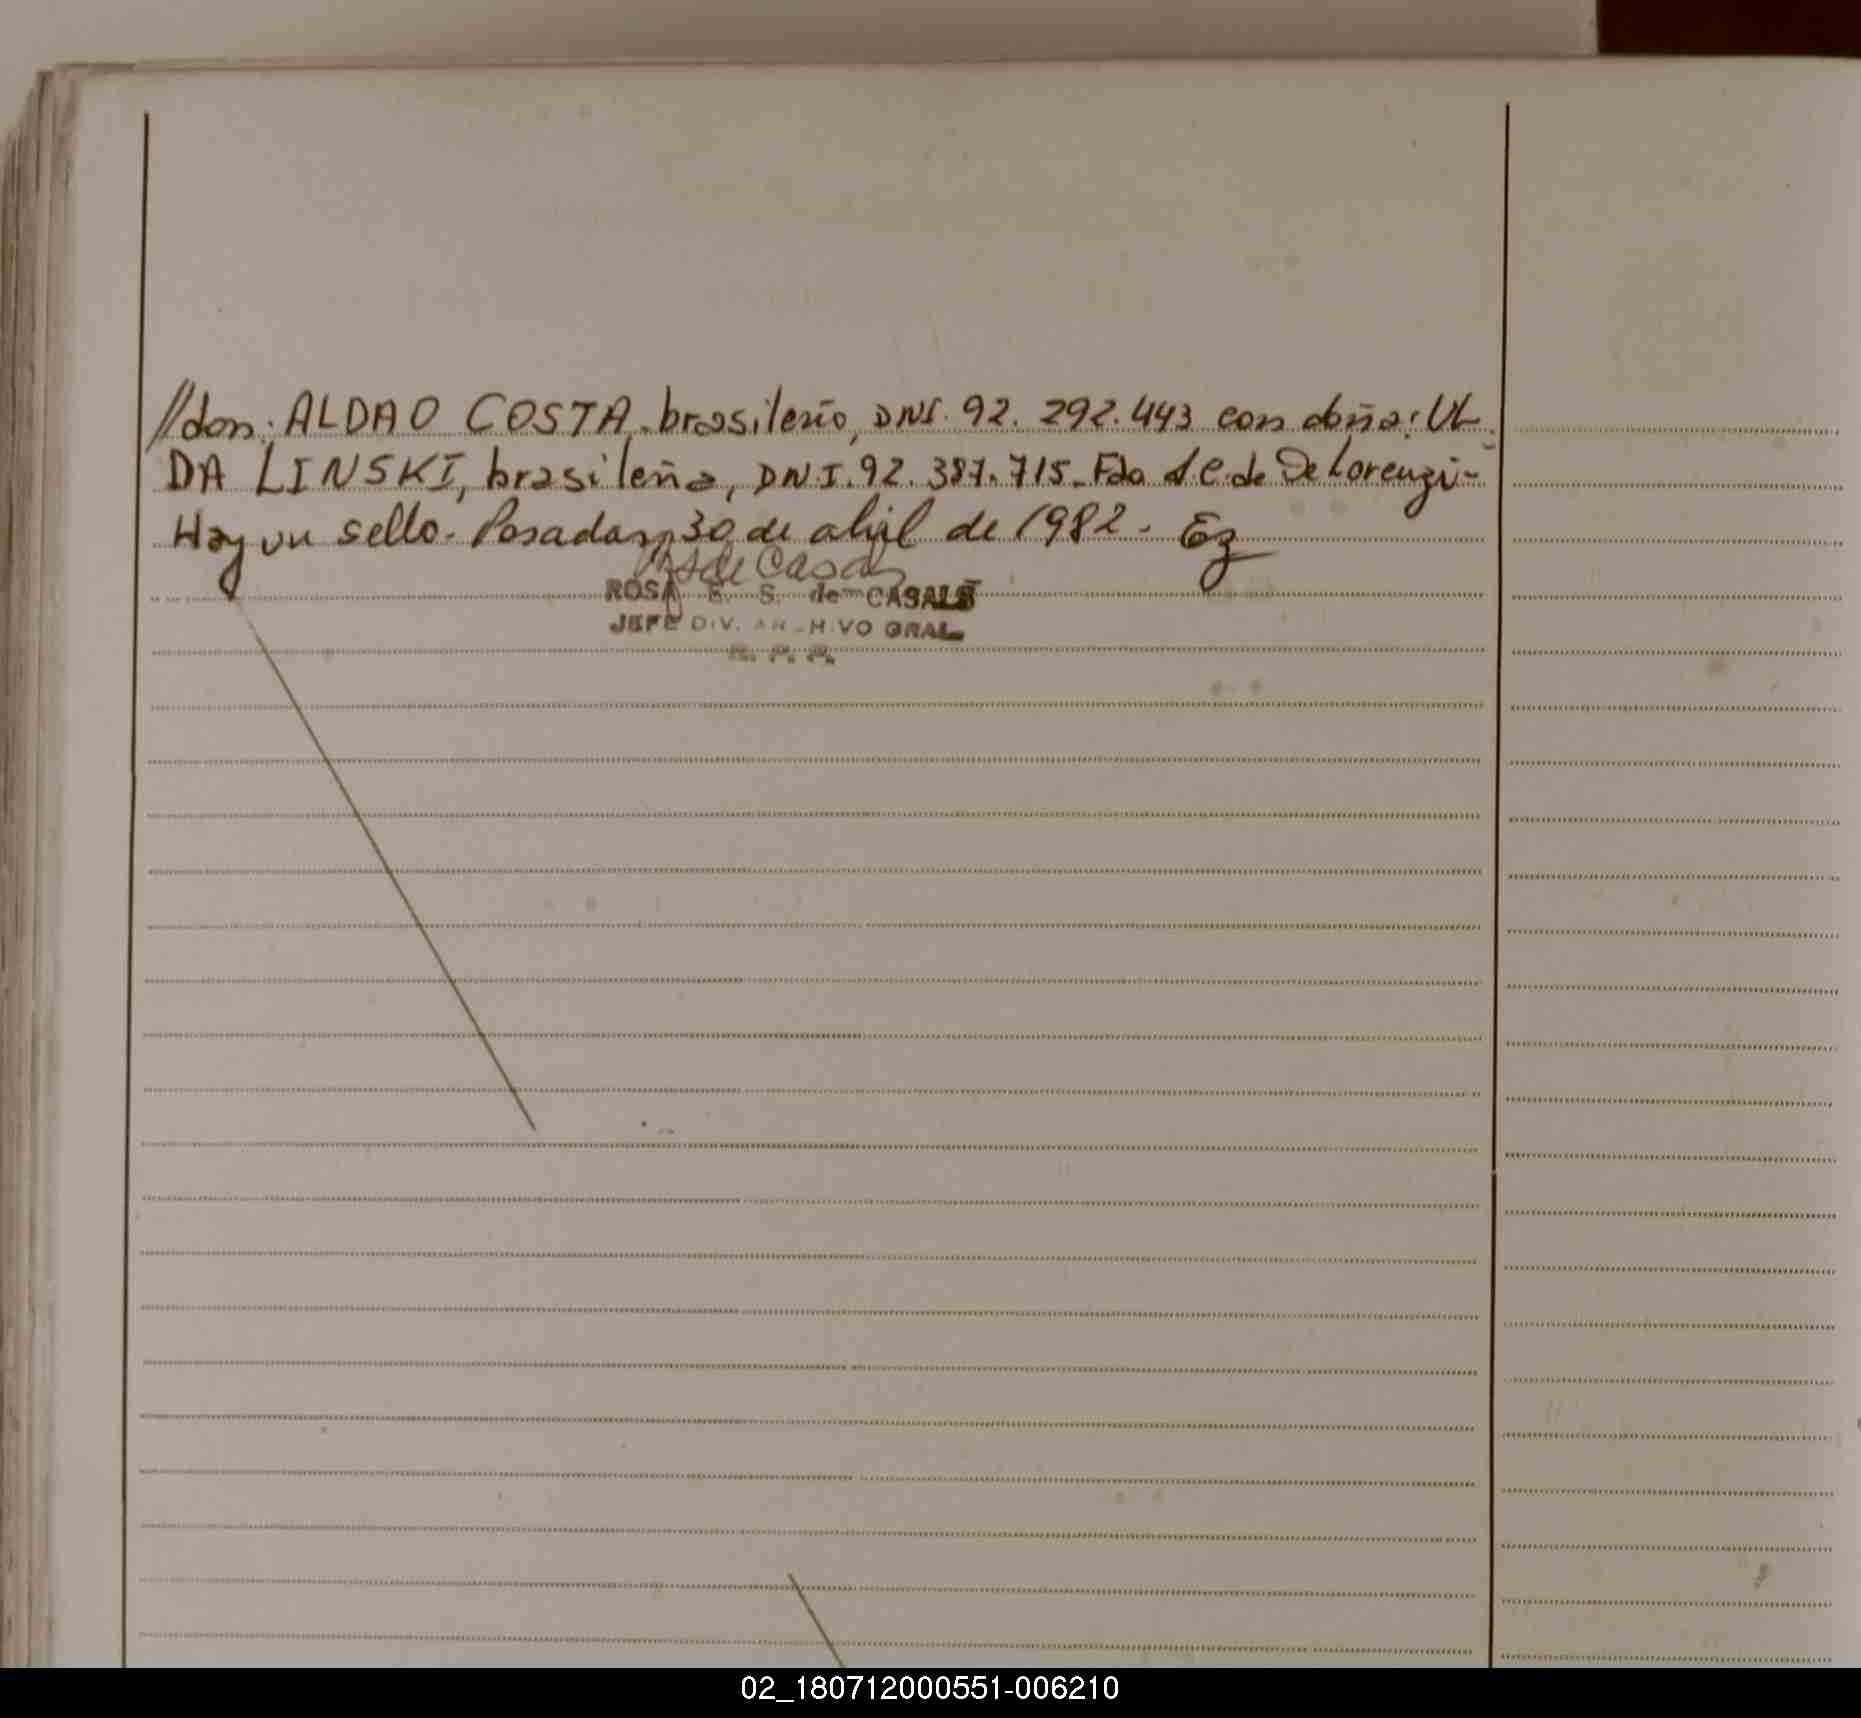 //don: ALDAO COSTA. brasileño, DNI. 92. 292.443 con doña: UL
DA LINSKI, brasileña, DNI. 92. 387. 715_ Fdo de De Lorenzi-
Hay un sello. Posadas, 30 de abril de 1982-
de Casals
ROSA E. S. de CASALS
JEFE DIV. ARCHIVO GRAL.
02_180712000551-006210